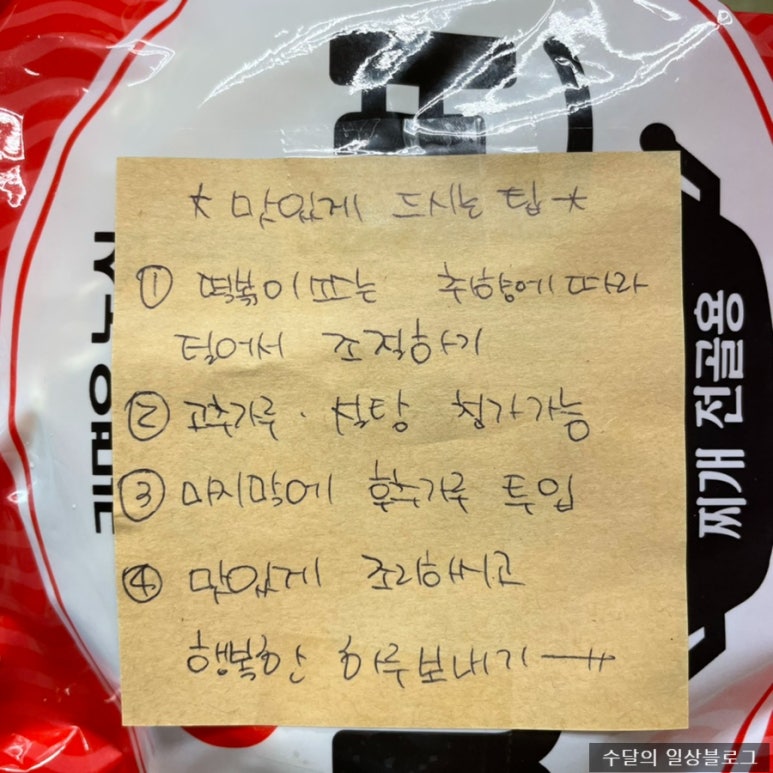 * 맛있게 드시는 팁 *
① 떡볶이또는 취향에따라
덜어서 조절하기
② 고추가루 · 설탕 첨가가능
③ 마지막에 후추가루 투입
④ 맛있게 조리하시고
행복한 하루보내기
찌개 전골용
수달의 일상블로그